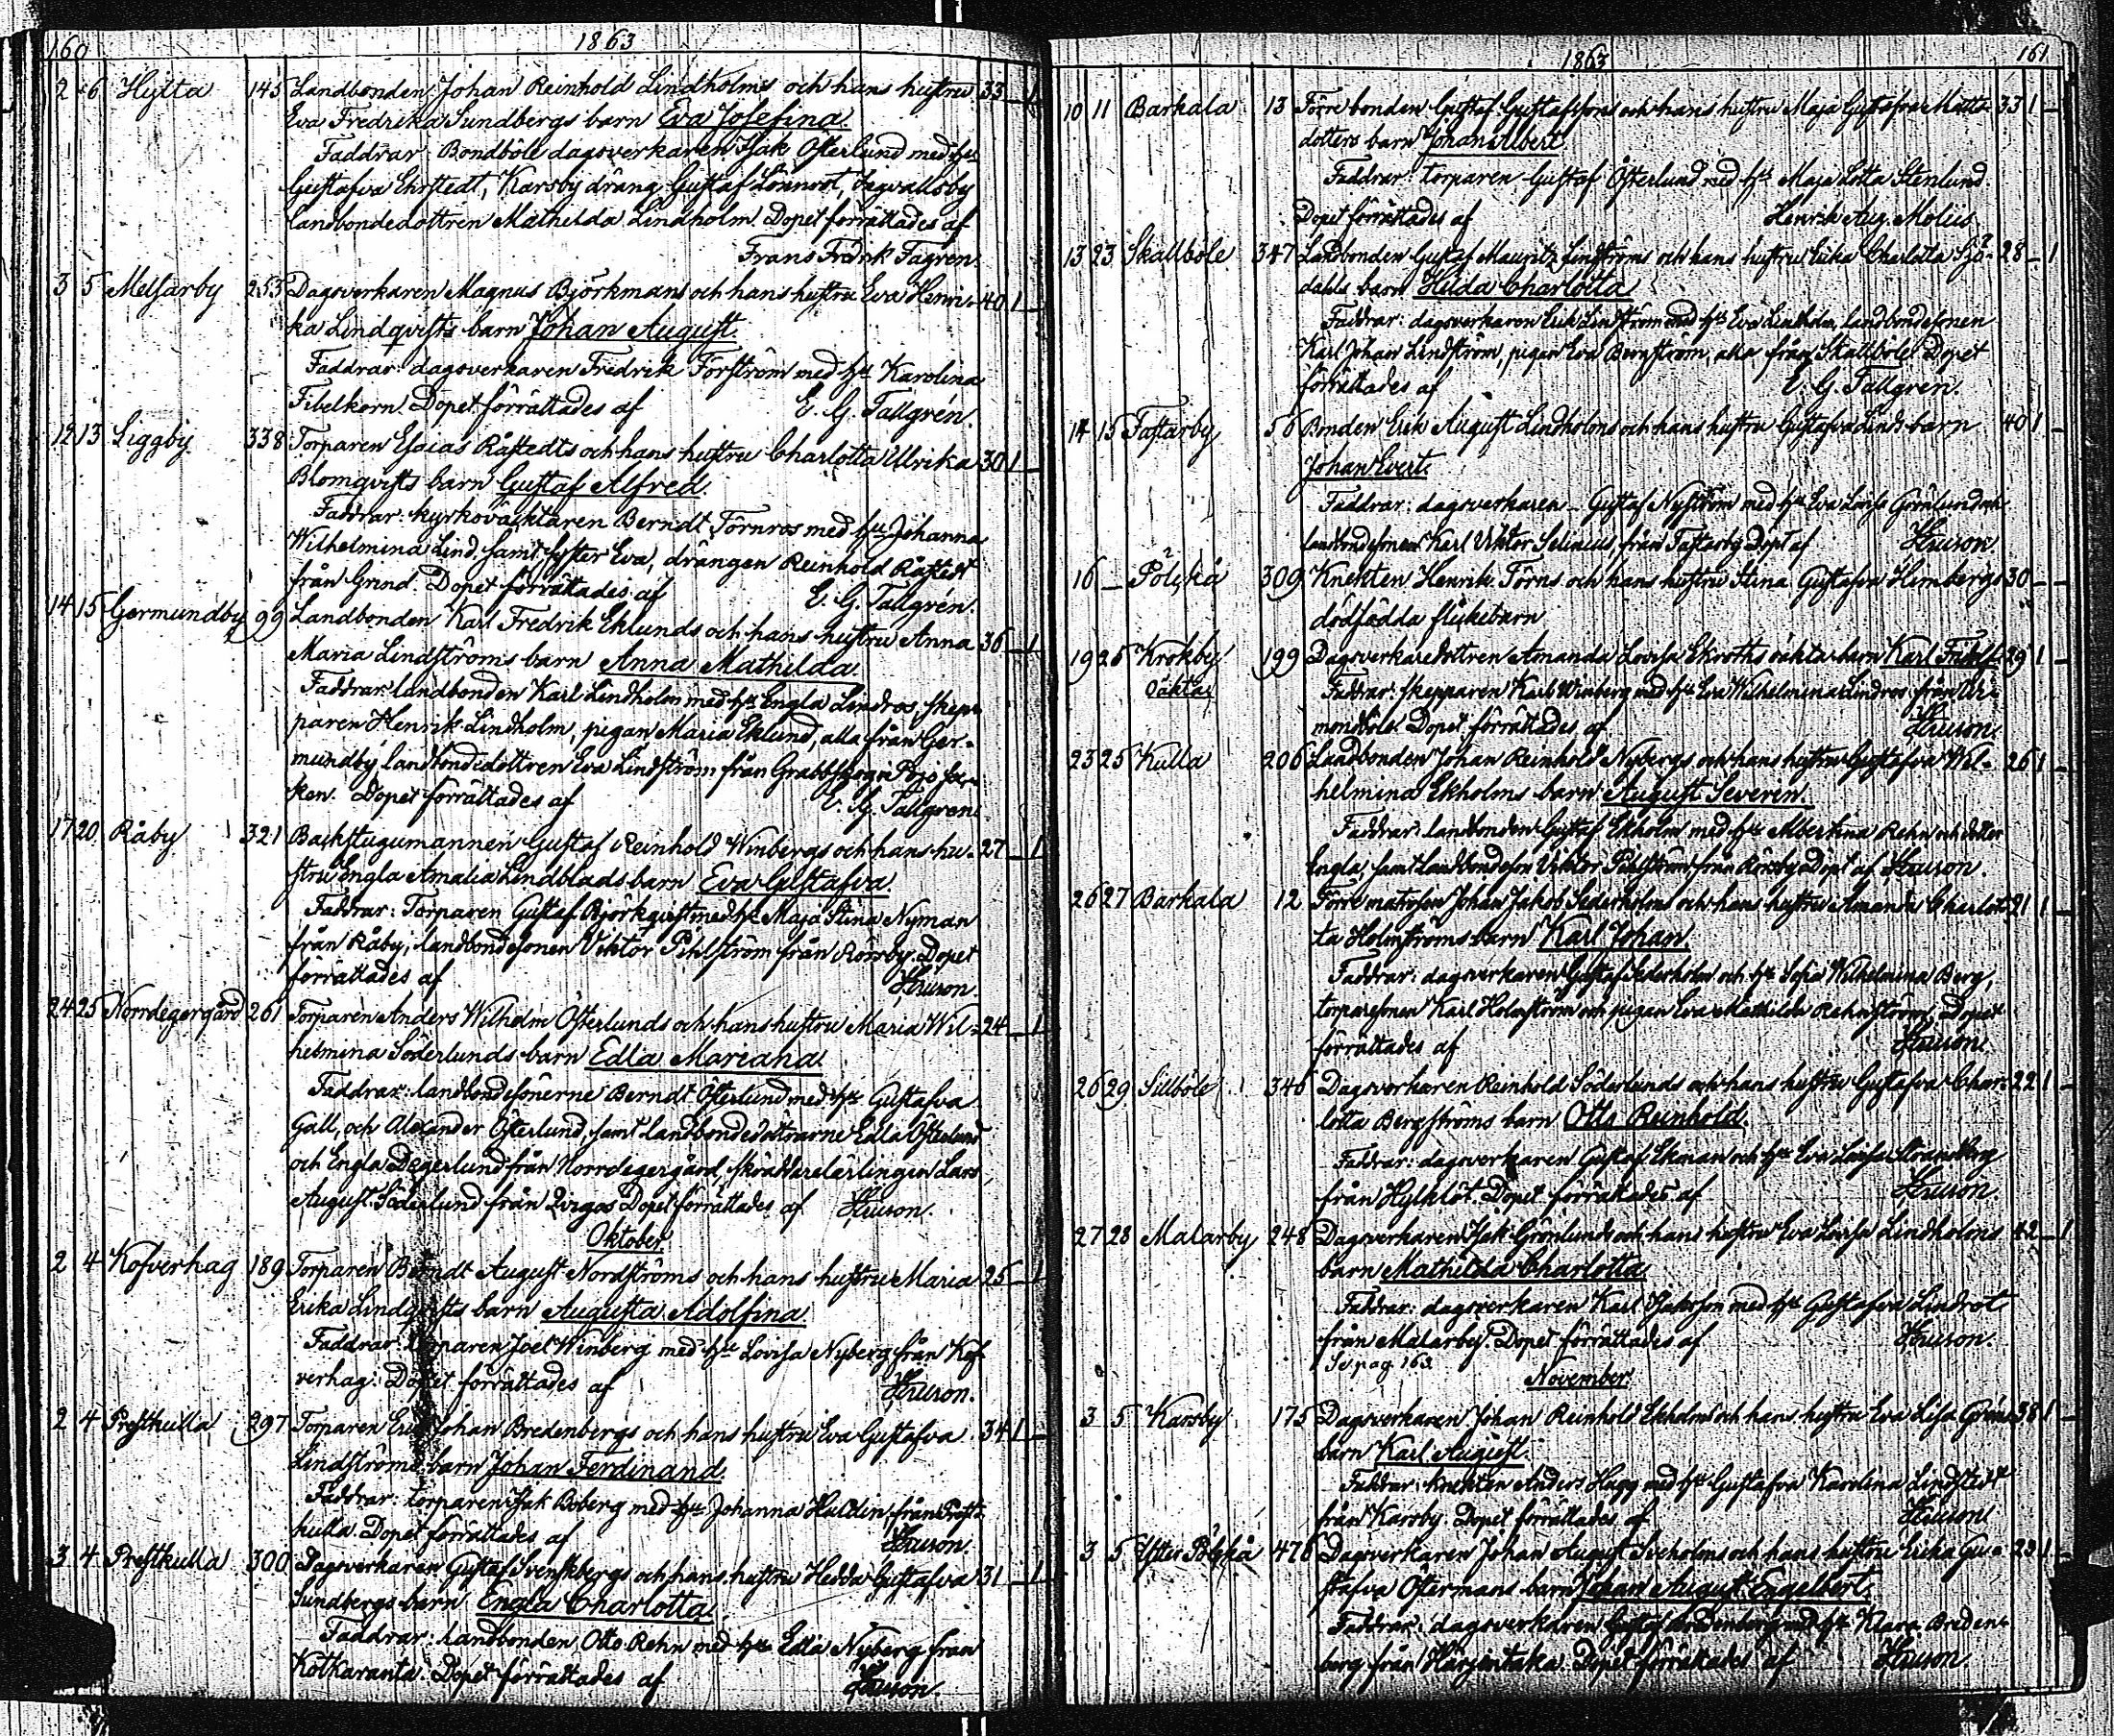 160
1863
2 6 Hylta 145 Landbonden Johan Reinhold Lindholms och hans hustru 33 _ 1
Eva Fredrika Sundbergs barn Eva Josefina.
Faddrar: Bondböle dagsverkaren Isak Österlund med h:u
Gustafva Ehrstedt, Karsby dräng Gustaf Lönnrot,
landbondedottren Mathilda Lindholm. Dopet förrättades af
Frans Fredrik Fagren.
3 5 Melsarby 253 Dagsverkaren Magnus Björkmans och hans hustru Eva Henri- 40 1 _
ka Lindqvists barn Johan August.
Faddrar: dagsverkaren Fredrik Forsström med h:u Karolina
Fibelkorn. Dopet förrättades af E. G. Tallgrén.
12 13 Liggby 338 Torparen Esaias Råstedts och hans hustru Charlotta Ulrika 30 1 _
Blomqvists barn Gustaf Alfred.
Faddrar: kyrkoväktaren Berndt Törnros med h:u Johanna
Wilhelmina Lind, samt syster Eva, drängen Reinhold Råstedt
från Grind. Dopet förrättades af E. G. Tallgrén.
14 15 Germundby 99 Landbonden Karl Fredrik Eklunds och hans hustru Anna 36 _ 1
Maria Lindströms barn Anna Mathilda.
Faddrar: landbonden Karl Lindholm med h:u Engla Lindros, skep-
paren Henrik Lindholm, pigan Maria Eklund, alla från Ger-
mundby, landbondedottren Eva Lindström från Grabbskog in Pojo soc-
ken. Dopet förrättades af E. G. Tallgren.
17 20 Råby 321 Backstugumannen Gustaf Reinhold Winbergs och hans hu- 27 _ 1
stru Engla Amalia Lindblads barn Eva Gustafva.
Faddrar: Torparen Gustaf Björkqvist med h:u Maja Stina Nyman
från Råby, landbondesonen Viktor Pihlström från Rörsby. Dopet
förrättades af
24 25 Norrdegergård 261 Torparen Anders Wilhelm Österlunds och hans hustru Maria Wil- 24 _ 1
helmina Söderlunds barn Edla Mariana.
Faddrar: landbondesönerne Berndt Österlund med h:u Gustafva
Gall, och Alexander Österlund, samt landbondedöttrarne Edla Österlund
och Engla Degerlund från Norrdegergård, skräddarelärlingen Lars
August Söderlund från Dopet förrättades af
Oktober
2 4 Kofverhag 189 Torparen Berndt August Nordströms och hans hustru Maria 25 _ 1
Erika Lindqvists barn Augusta Adolfina.
Faddrar: torparen Joel Winberg med h:u Lovisa Nyberg från Kof-
verhag. Dopet förrättades af
2 4 Prestkulla 297 Torparen Erik Johan Bredenbergs och hans hustru Eva Gustafva 34 1 _
Lindströms barn Johan Ferdinand.
Faddrar: torparen Isak Boberg med h:u Johanna Huldin från Prest-
kulla. Dopet förrättades af
3 4 Prestkulla 300 Dagsverkaren Gustaf Svenskbergs och hans hustru Hedda Gustafva 31 _ 1
Sundbergs barn Engla Charlotta.
Faddrar: landbonden Otto Rehn med h:u Edla Nyberg från
Kotkaranta. Dopet förrättades af
1863
161
10 11 Barkala 13 Förre bonden Gustaf Gustafssons och hans hustru Maja Gustafva Matts- 33 1 _
dotters barn Johan Albert.
Faddrar: torparen Gustaf Österlund med h:u Maja Lotta Stenlund.
Dopet förrättades af Henrik Aug. Molus
13 23 Skallböle 347 Landbonden Gustaf Mauritz Lindströms och hans hustru Erika Charlotta Sjö- 28 _ 1
dahls barn Hilda Charlotta.
Faddrar: dagsverkaren Erik Lindström med h:u Eva Lindholm, landbondesonen
Karl Johan Lindström, pigan Eva Bergström, alla från Skallböle. Dopet
förrättades af E. G. Tallgren.
14 15 Fastarby 56 Bonden Erik August Lindholms och hans hustru Gustafva Linds barn 40 1 _
Johan Evert.
Faddrar: dagsverkaren Gustaf Nyström med h:u Eva Lovisa Grönlund och
landbondesonen Karl Viktor Selinius från Fastarby. Dopet af
16 _ Pölskå 309 Knekten Henrik Törns och hans hustru Stina Gustafva Himbergs 30 _ _
dödfödda flickebarn
19 26 Krokby 199 Dagsverkaredottren Amanda Lovisa Ekroths oäkta barn Karl 29 1 _
Oäkta
Faddrar: skepparen Karl Winberg med h:u Eva Wilhelmina Lindros från
Dopet förrättades af
23 25 Kulla 206 Landbonden Johan Reinhold Nybergs och hans hustru Gustafva Wil- 26 1 _
helmina Ekholms barn August Severin.
Faddrar: landbonden Gustaf Ekholm med h:u Albertina Rehn och dotter
Engla, samt landbondeson Viktor Pihlström från Rörsby. Dopet af
26 27 Barkala 12 Förre matrosen Johan Jakob Sederholms och hans hustru Amanda Charlot- 21 1 _
ta Holmströms barn Karl Johan.
Faddrar: dagsverkaren Gustaf Sederholm och h:u Sofia Wilhelmina Berg,
torparesonen Karl Holmström och pigan Eva Mathilda Rehnström. Dopet
förrättades af
26 29 Sillböle 346 Dagsverkaren Reinhold Söderlunds och hans hustru Gustafva Char- 22 1 _
lotta Bergströms barn Otto Reinhold.
Faddrar: dagsverkaren Gustaf Ekman och h:u Eva Lovisa Strandberg
från Dopet förrättades af
27 28 Malarby 248 Dagsverkaren Isak Grönlunds och hans hustru Eva Lovisa Lindholms 42 _ 1
barn Mathilda Charlotta
Faddrar: dagsverkaren Karl Isaksson med h:u Gustafva Lindrot
från Malarby. Dopet förrättades af
Se pag. 163.
November.
3 5 Karsby 175 Dagsverkaren Johan Reinhold Ekholms och hans hustru Eva Lisa 38 1 _
barn Karl August.
Faddrar: knekten Anders Hagg med h:u Gustafva Karolina Lindstedt
från Karsby. Dopet förrättades af
3 5 Pölskå 476 Dagsverkaren Johan August och hans hustru Erika Gu- 23 1 _
stafva Östermans barn Johan August Engelbert.
Faddrar: dagsverkaren Gustaf Bredenberg med h:u Klara Breden-
berg från Harjentaka. Dopet förrättades af